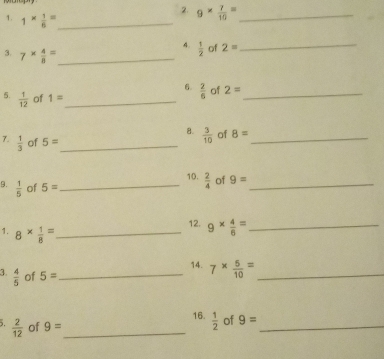 1. 1 × 1/6 = ____________ 2. 9 × 7/10 = ____________
3. 7 × 4/8 = ____________ 4. 1/2 of 2 = ____________
5. 1/12 of 1 = ____________ 6. 2/6 of 2 = ____________
7. 1/3 of 5 = ____________ 8. 3/10 of 8 = ____________
9. 1/5 of 5 = ____________ 10. 2/4 of 9 = ____________
1. 8 × 1/8 = ____________ 12. 9 × 4/6 = ____________
3. 4/5 of 5 = ____________ 14. 7 × 5/10 = ____________
5. 2/12 of 9 = ____________ 16. 1/2 of 9 = ____________